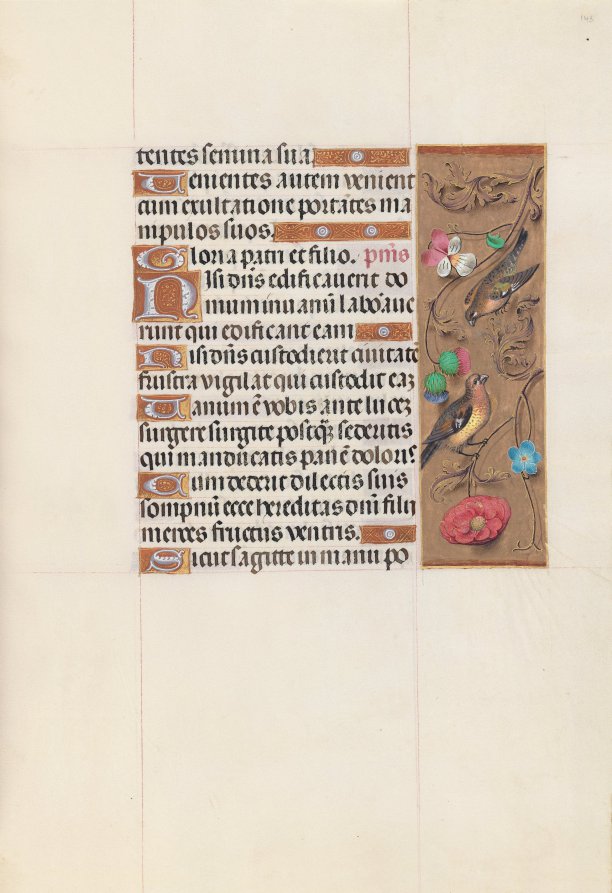 143
tentes semina sua
Uenientes autem venient
cum exultatione portātes ma
nipulos suos.
Gloria patri et filio. pm̄s
Nisi dn̄s edificauerit do
mum in vanū laboraue
runt qui edificant eam
Nisi dn̄s custodierit ciuitatē
frustra vigilat qui custodit eaʒ
Uanum ē vobis ante luceʒ
surgere surgite postqꝫ sederitis
qui manducatis panē doloris
Cum dederit dilectis suis
sompnū ecce hereditas dn̄i filii
merces fructus ventris.
Sicut sagitte in manu po